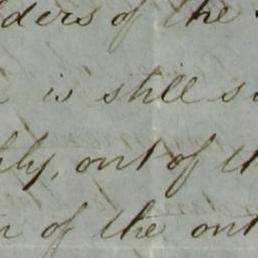 ders of the
is still s
ly, out of th
of the out